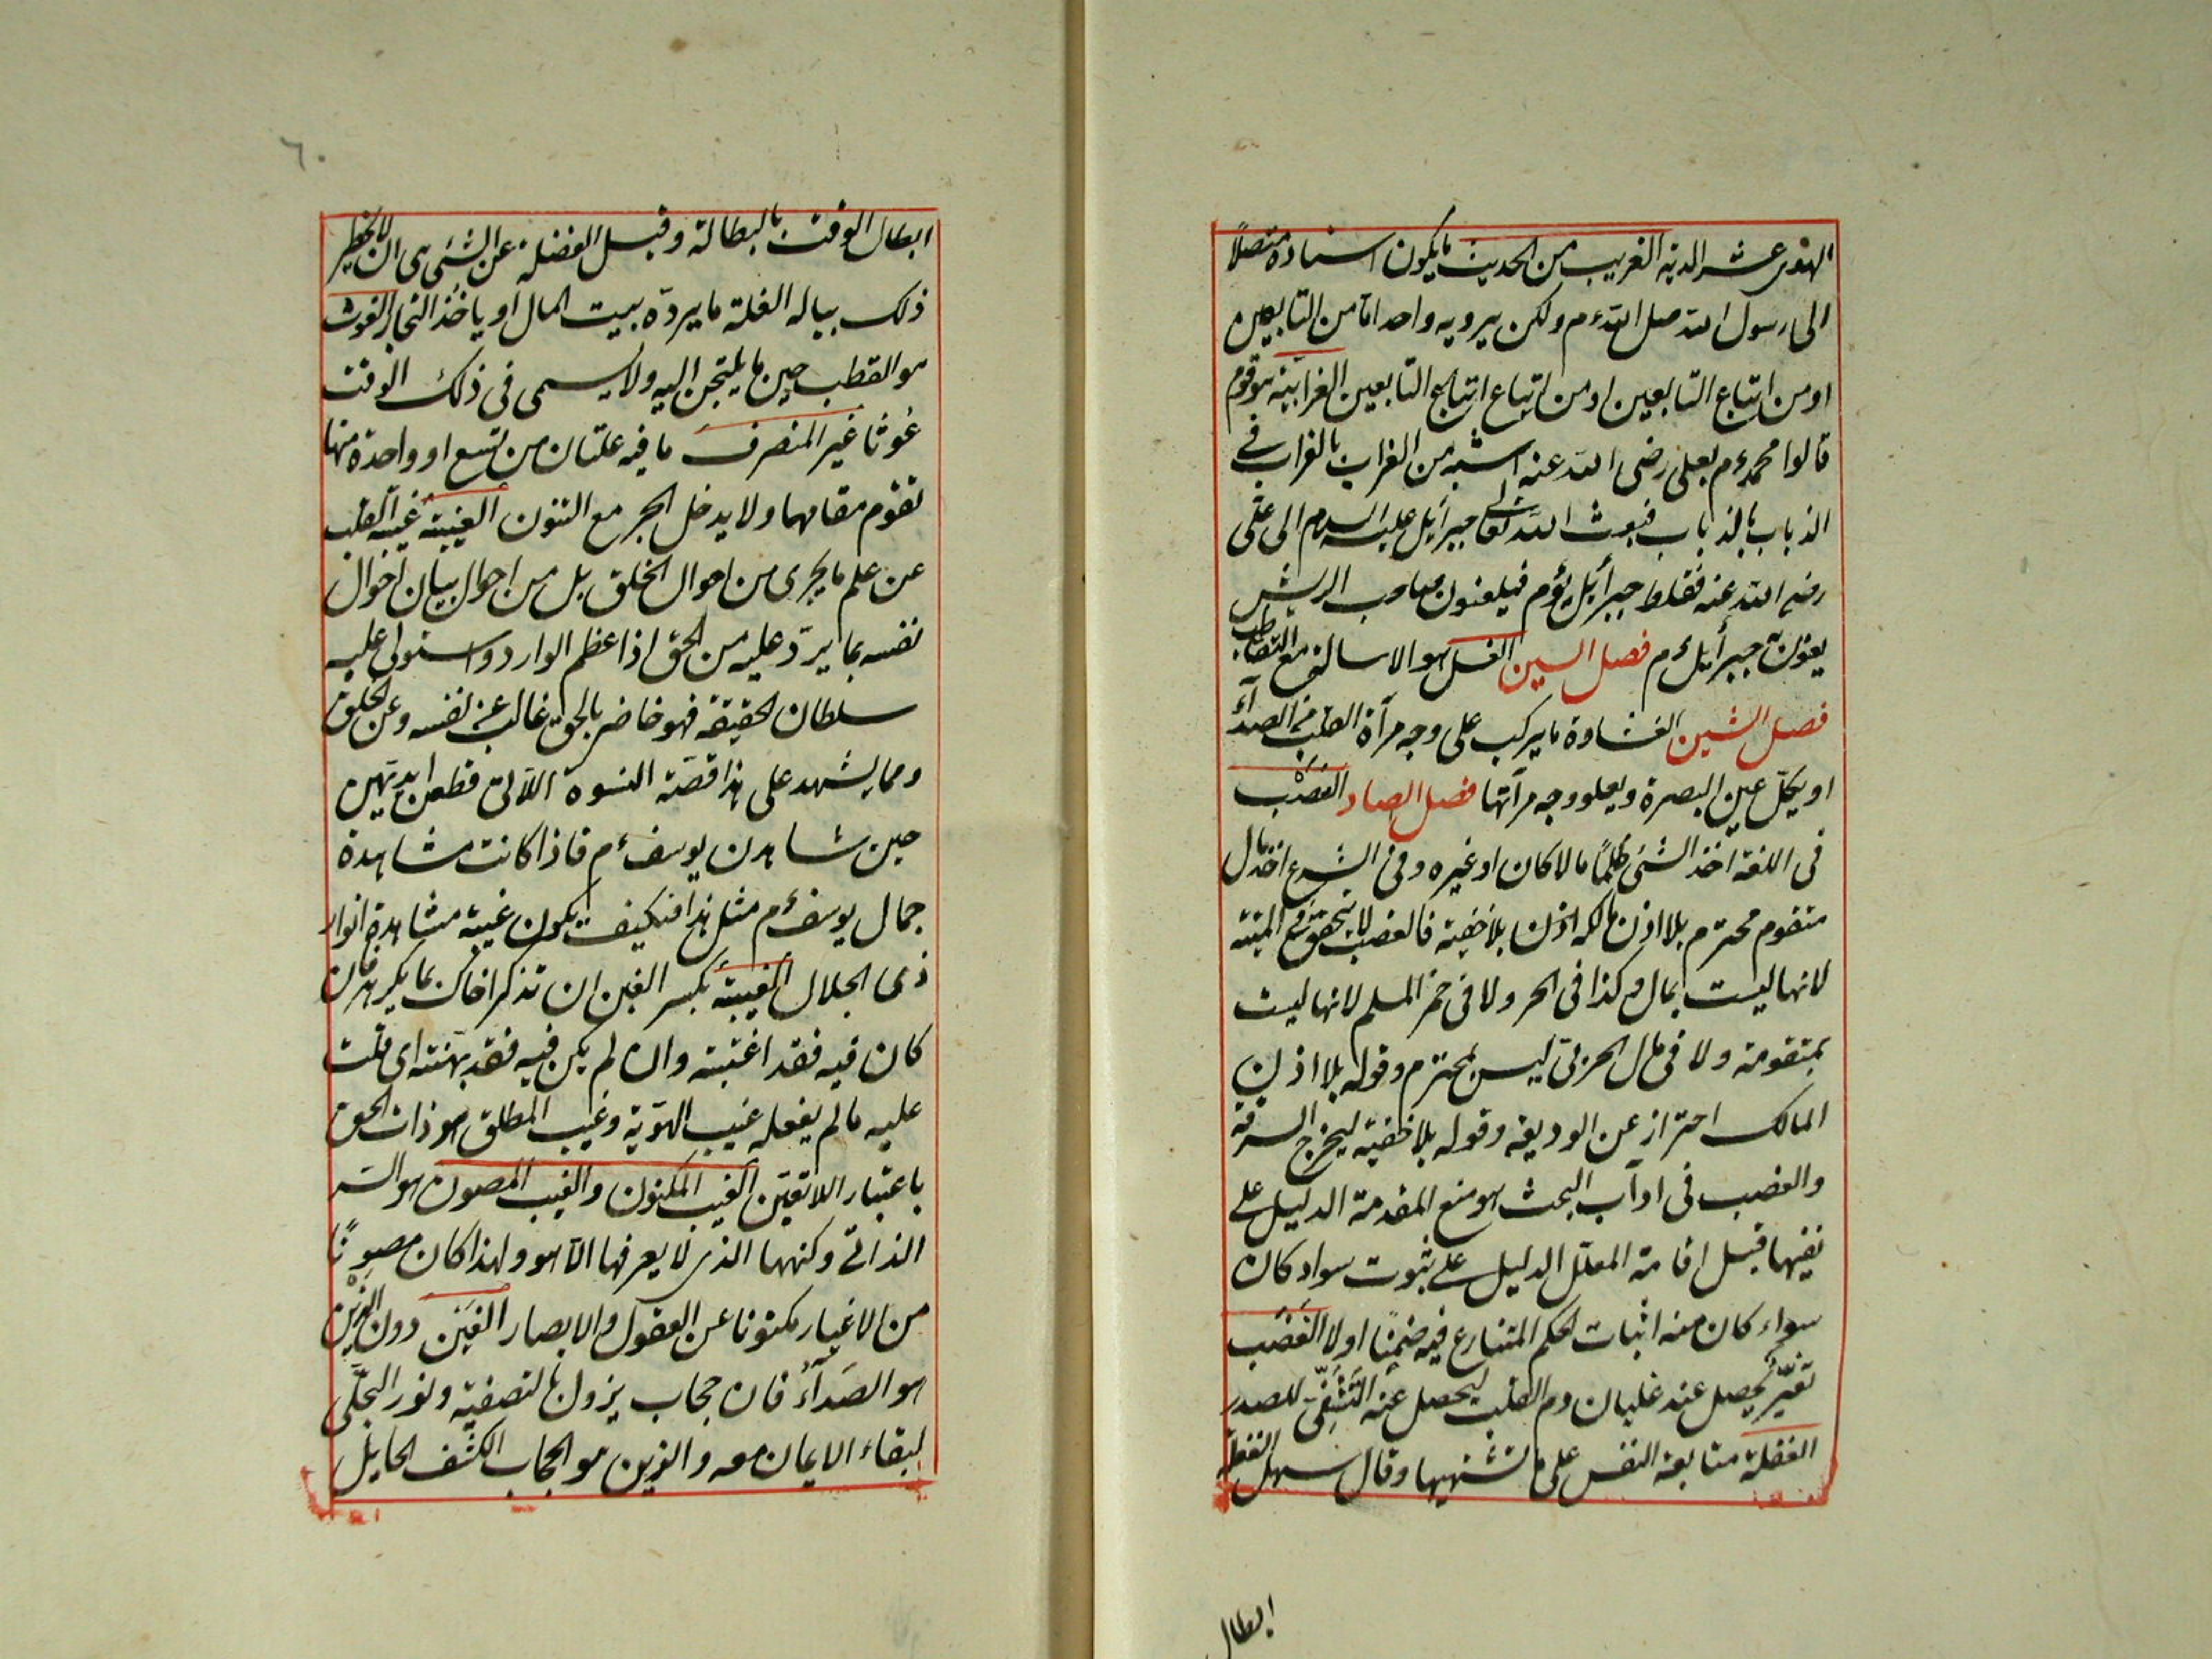 الهندى عشر الدية الغريب من الحديث ما يكون اسناده متصلاً
الى رسول الله صلى الله ء م ولكن يرويه واحد اما من التابعين
او من اتباع التابعين او من اتباع اتباع التابعين الغرابية هو قوم
قالوا محمد ء م بعلى رضى الله عنه اشبه من الغراب بالغراب فى
الذباب بالذباب فبعث الله تعالى جبرأيل عليه السلام الى على
رضى الله عنه فغلط جبرأيل ء م فيلعنون صاحب الريش
يعنون جبرأيل ء م فصل السين الغسل هو الاسالة مع التقاطر
فصل الشين الغشاوة ما يركب على وجه مرآة القلب من الصدآء
او يكلّ عين البصرة ويعلو وجه مرآتها فصل الصاد الغصب
فى اللغة اخذ الشئ ظلمًا مالا كان او غيره وفى الشرع اخذ مال
متقوم محترم بلا اذن مالكه اذن بلا خفية فالغصب لا يتحقق فى الميتة
لانها ليست بمال وكذا فى الحر ولا فى خمر المسلم لانها ليست
بمتقومة ولا فى مال الحربى ليس بمحترم وقوله بلا اذن
المالك احتراز عن الوديعة وقوله بلا خفية ليخرج السرقة
والغصب فى اوآب البحث هو منع المقدمة الدليل على
نفيها قبل اقامة المعلل الدليل على ثبوت سواد كان
سواء كان منه اثبات الحكم المتنازع فيه ضمنًا اولا الغضب
تغيّر يحصل عند غليان دم القلب ليحصل عنه التشفى للصدر
الغفلة متابعة النفس على ما تشتهيها وقال سهل الغفلة
ابطال
٦٠
ابطال الوقت بالبطالة وقيل الغفلة عن الشئ هى ان لا يخطر
ذلك بباله الغلة ما يردّه بيت المال او ياخذ التجار الغوث
هو القطب حين ما يلتجئ اليه ولا يسمى فى ذلك الوقت
غوثا غير المنصرف ما فيه علتان من تسع او واحدة منها
تقوم مقامهما ولا يدخل الجر مع التنون الغيبة غيبة القلب
عن علم ما يجرى من احوال الخلق بل من احوال بيان احوال
نفسه بما يردّ عليه من الحق اذا عظم الوارد واستولى عليه
سلطان الحقيقة فهو خاضر بالحق غائب عن نفسه وعن الخلق
ومما يشهد على هذا قصّة النسوة اللاتى قطعن ايديهين
حين شاهدن يوسف ء م فاذا كانت مشاهدة
جمال يوسف ء م مثل هذا فكيف يكون غيبة مشاهدة انوار
ذى الجلال الغيبة بكسر الغين ان تذكر اخاك بما يكرهه فان
كان فيه فقد اغتبته وان لم يكن فيه فقد بهتّه اى قلت
عليه ما لم يفعله غيب الهوّية وغيب المطلق هو ذات الحق
باعتبار اللاتعيّن الغيب المكنون والغيب المصون هو السر
الذاتى وكنهها الذى لا يعرفها الّا هو ولهذا كان مصونًا
من الاغيار مكنونا عن العقول والابصار الغين دون الرين
هو الصدآء فان حجاب يزول بالتصفية ونور التجلّى
لبقاء الايمان معه والزين هو الحجاب الكثف الحايل